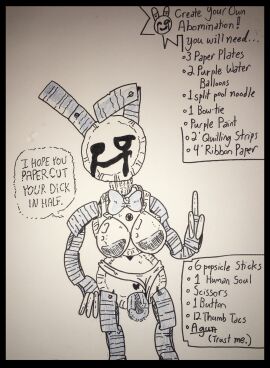 Create Your Own
Abomination!
you will need...
•3 Paper Plates
•2 Purple Water
Balloons
•1 split pool noodle
•1 Bowtie
•Purple Paint
•2' Quilling Strips
•4' Ribbon Paper
I HOPE YOU
PAPERCUT
YOUR DICK
IN HALF.
•6 popsicle Sticks
•1 Human Soul
•Scissors
•1 Button
•12 Thumb Tacs
•A gun
(Trust me.)